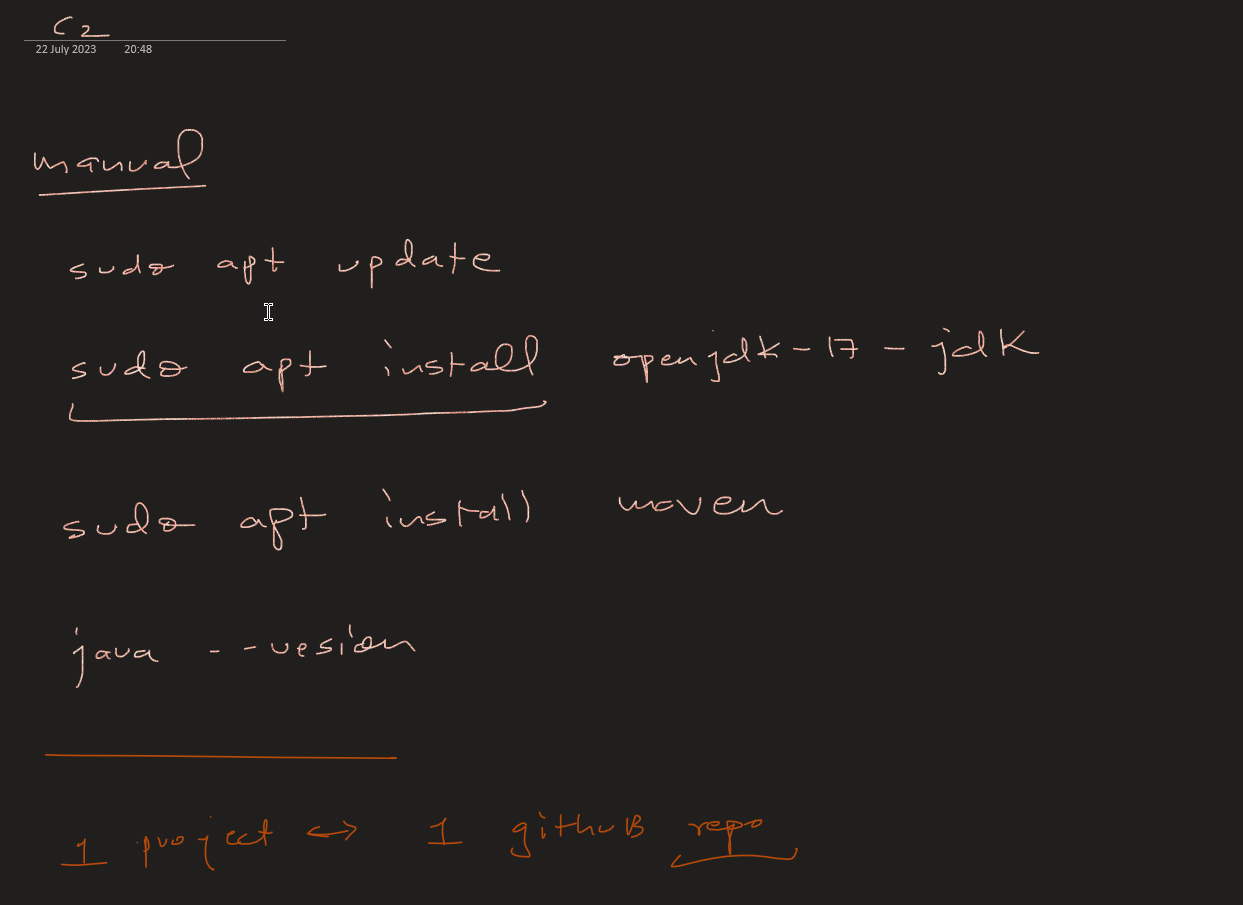 C2
22 July 2023 20:48
manual
sudo apt update
sudo apt install openjdk-17-jdk
sudo apt install maven
java --vesion
1 project <-> 1 githuB repo